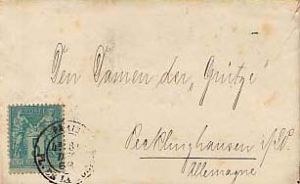 Den Damen der „Grütze"
Recklinghausen i/W.
Allemagne